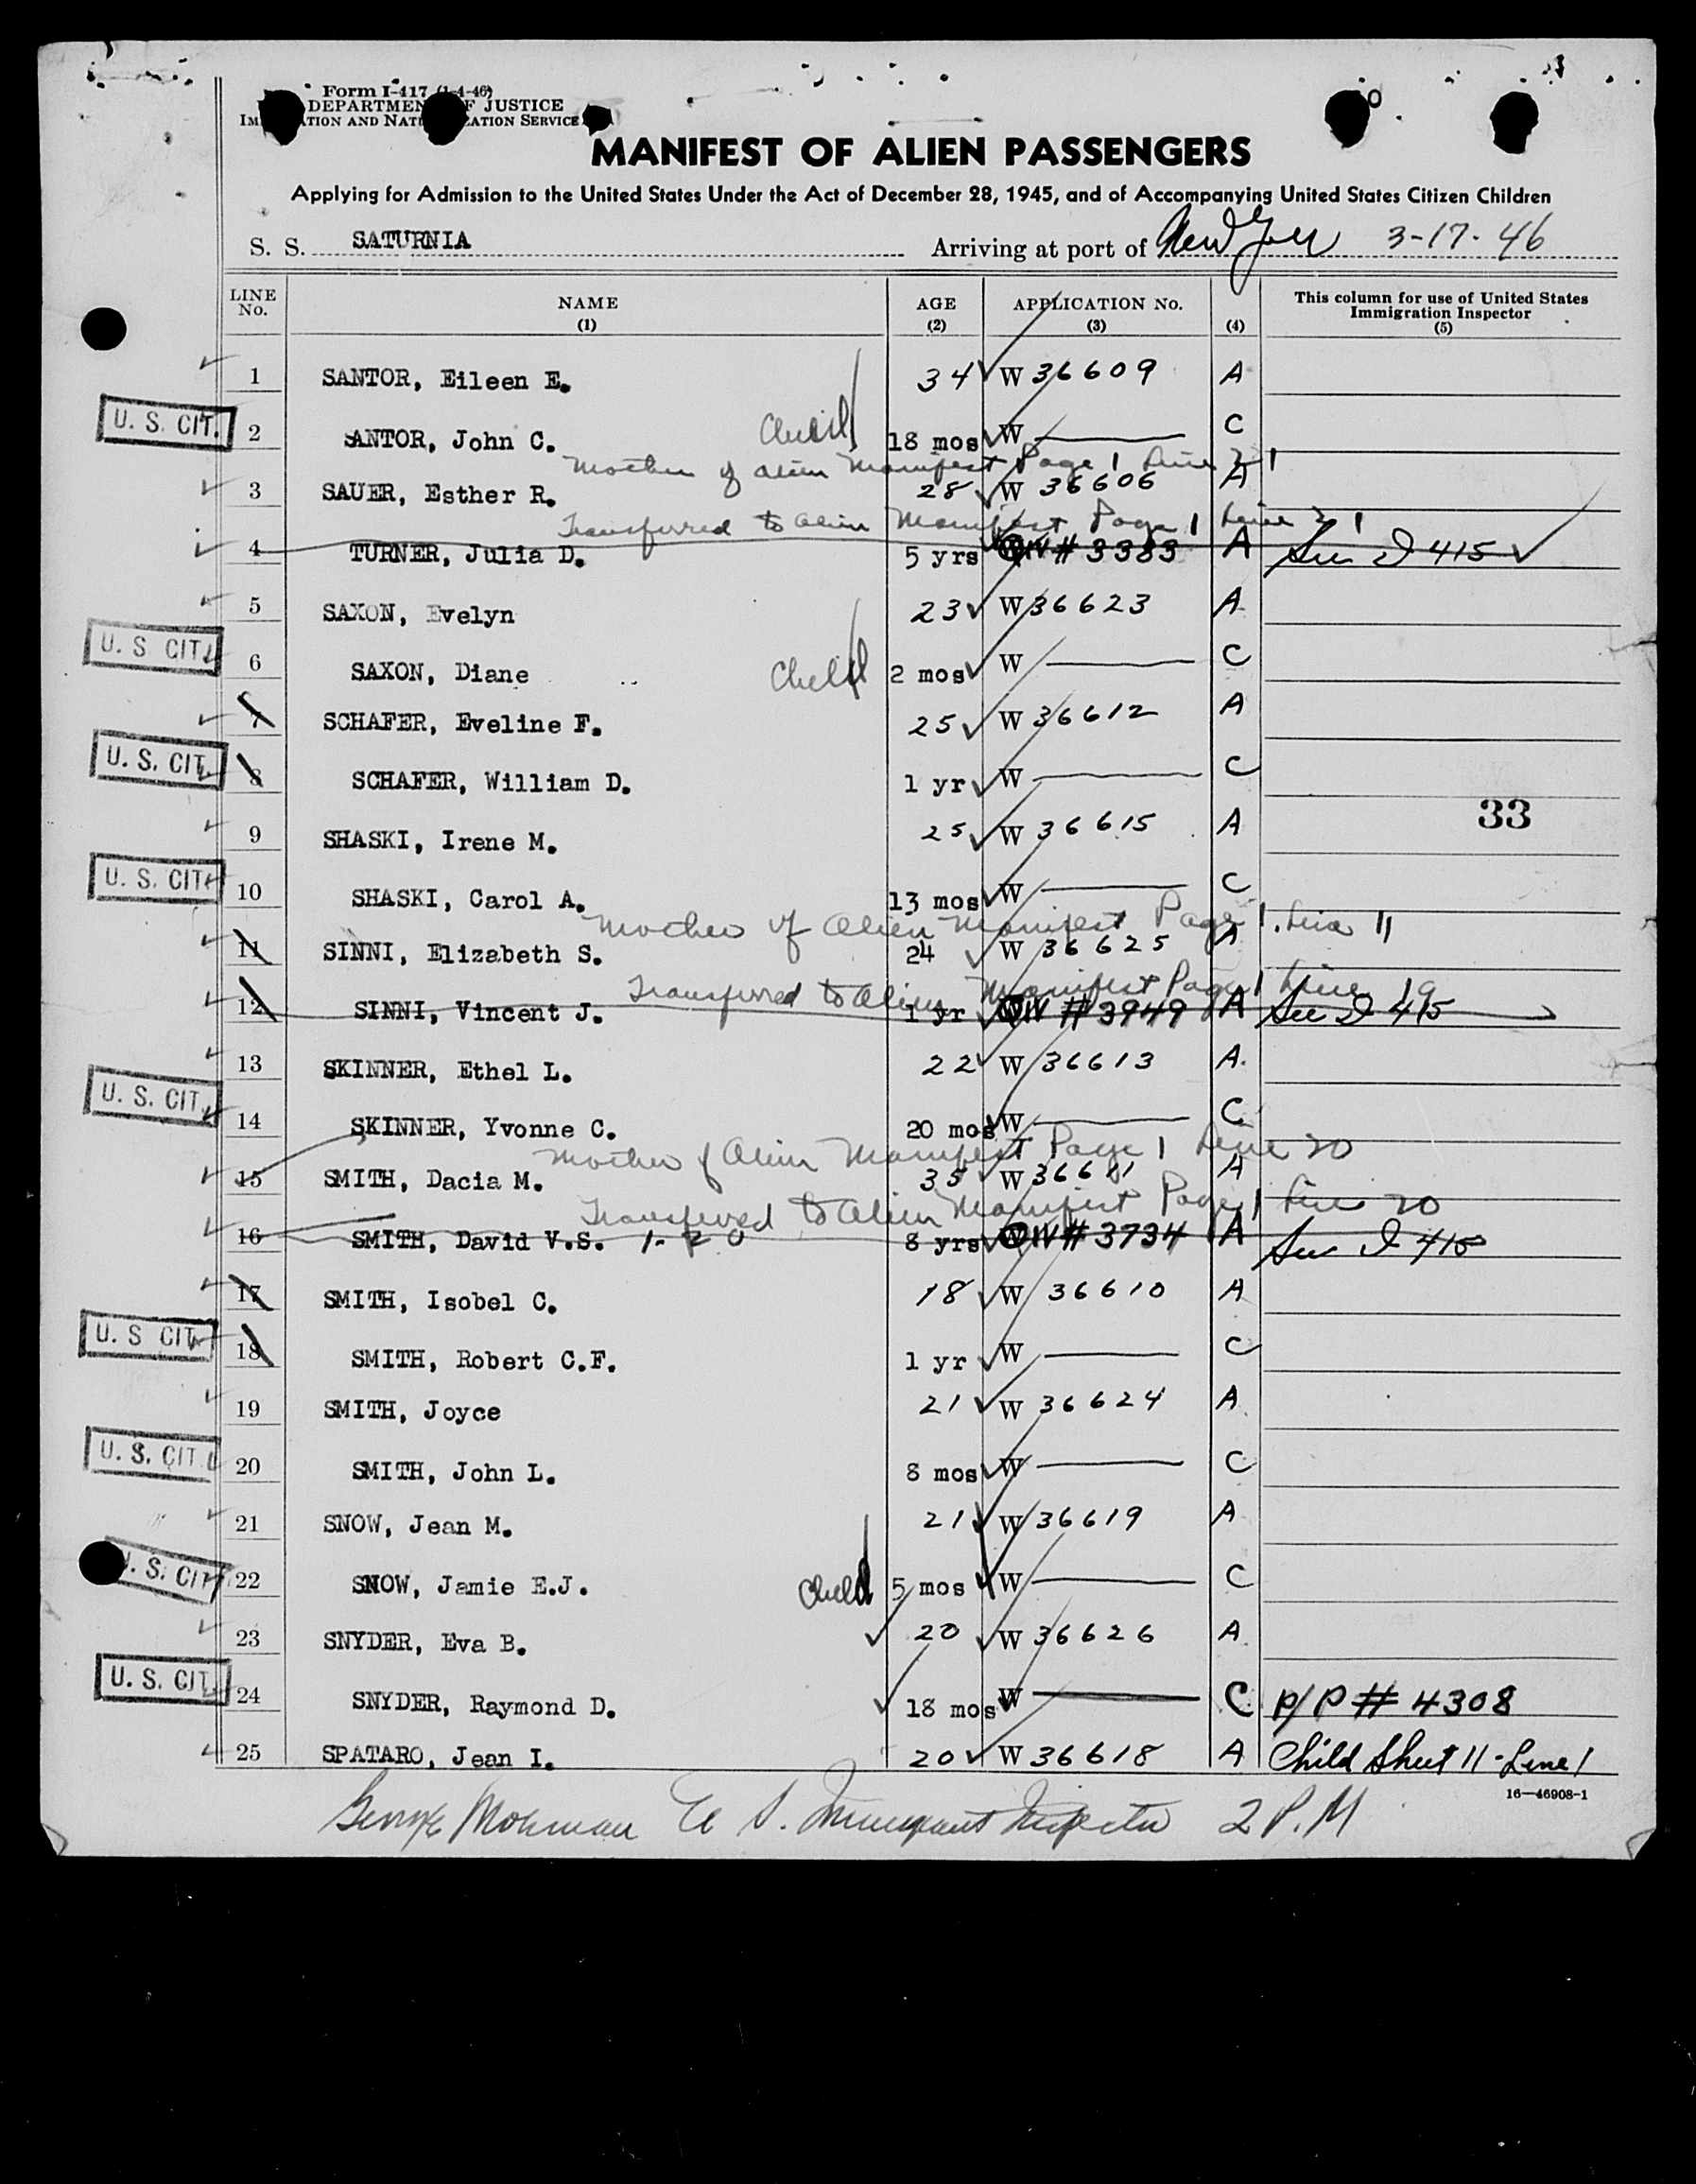 Form I-417 (1-4-46)
DEPARTMENT OF JUSTICE
IMMIGRATION AND NATURALIZATION SERVICE
MANIFEST OF ALIEN PASSENGERS
Applying for Admission to the United States Under the Act of December 28, 1945, and of Accompanying United States Citizen Children
S. S. SATURNIA Arriving at port of New York 3-17-46
LINE No. NAME (1) AGE (2) APPLICATION No. (3) (4) This column for use of United States Immigration Inspector (5)
1 SANTOR, Eileen E. 34 W 36609 A
U. S. CIT. 2 SANTOR, John C. Child 18 mos W C
Mother of alien Manifest Page 1 Line 21
3 SAUER, Esther R. 28 W 36606 A
Transferred to alien Manifest Page 1 Line 21
4 TURNER, Julia D. 5 yrs QIV # 3383 A See I 415
5 SAXON, Evelyn 23 W 36623 A
U. S. CIT. 6 SAXON, Diane Child 2 mos W C
7 SCHAFER, Eveline F. 25 W 36612 A
U. S. CIT. 8 SCHAFER, William D. 1 yr W C
33
9 SHASKI, Irene M. 25 W 36615 A
U. S. CIT. 10 SHASKI, Carol A. 13 mos W C
Mother of Alien Manifest Page 1. Line
11 SINNI, Elizabeth S. 24 W 36625 A
Transferred to Alien Manifest Page 1 Line 19
12 SINNI, Vincent J. 1 yr QIV # 3949 A See I 415
13 SKINNER, Ethel L. 22 W 36613 A.
U. S. CIT. 14 SKINNER, Yvonne C. 20 mos W C
Mother of Alien Manifest Page 1 Line 20
15 SMITH, Dacia M. 35 W 36611 A
Transferred to Alien Manifest Page 1 Line 20
16 SMITH, David V.S. 1-20 8 yrs QIV # 3734 A See I 415
17 SMITH, Isobel C. 18 W 36610 A
U. S. CIT. 18 SMITH, Robert C.F. 1 yr W C
19 SMITH, Joyce 21 W 36624 A
U. S. CIT. 20 SMITH, John L. 8 mos W C
21 SNOW, Jean M. 21 W 36619 A
U. S. CIT. 22 SNOW, Jamie E.J. Child 5 mos W C
23 SNYDER, Eva B. 20 W 36626 A
U. S. CIT. 24 SNYDER, Raymond D. 18 mos W C P/P # 4308
25 SPATARO, Jean I. 20 W 36618 A Child Sheet 11 - Line 1
16—46908-1
George U. S. Immigrant Inspector 2 P.M